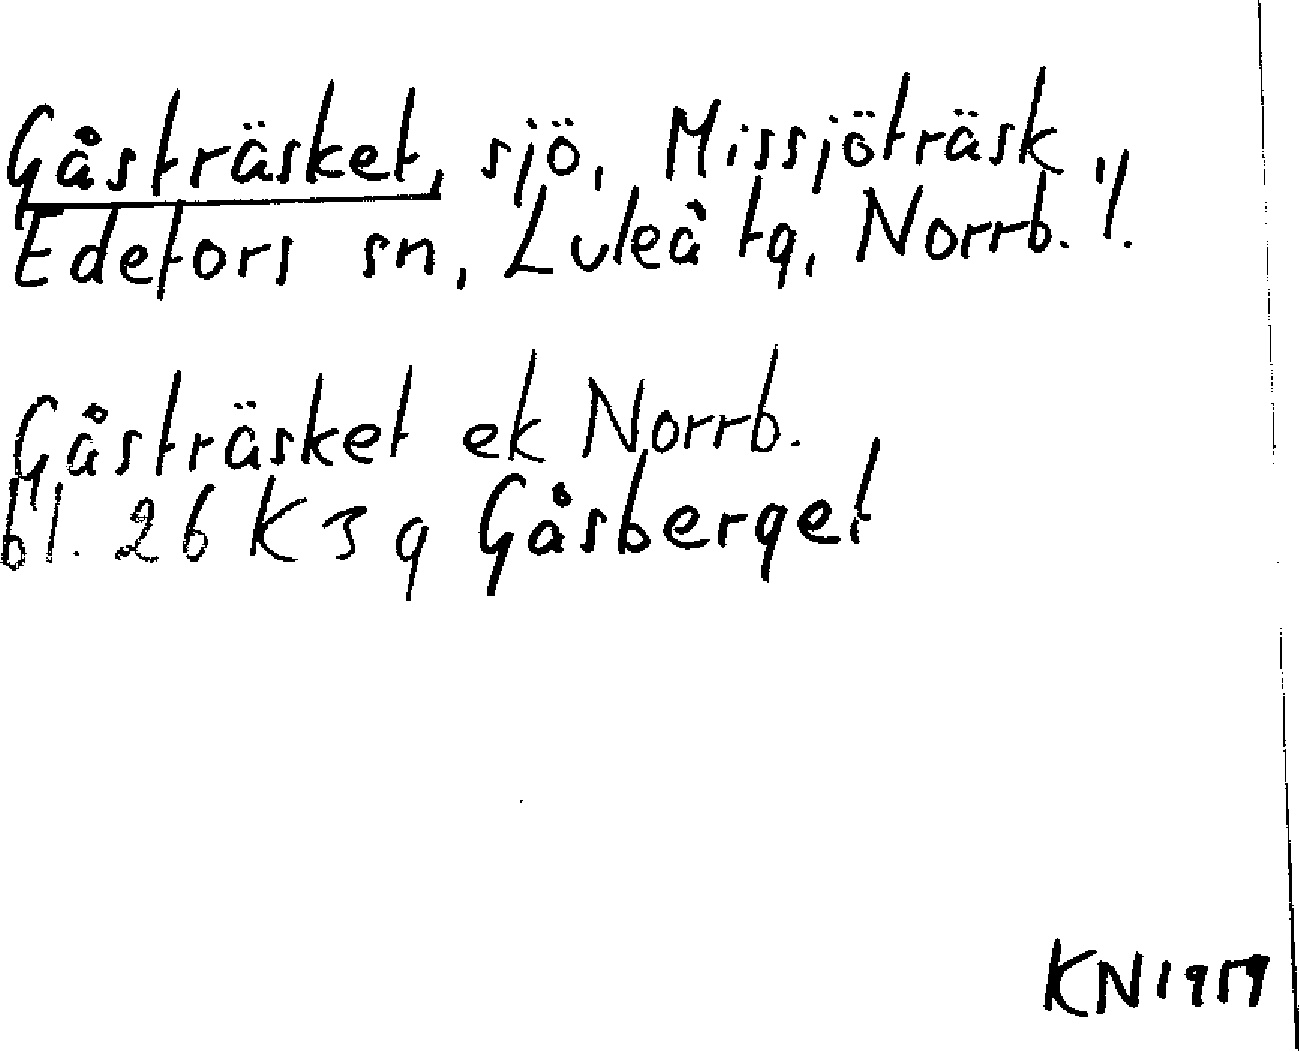 Gåsträsket, sjö, Missjöträsk,
Edefors sn, Luleå tg, Norrb. ./.
Gåsträsket ek Norrb.
bl. 26 K 3 g Gåsberget
KN